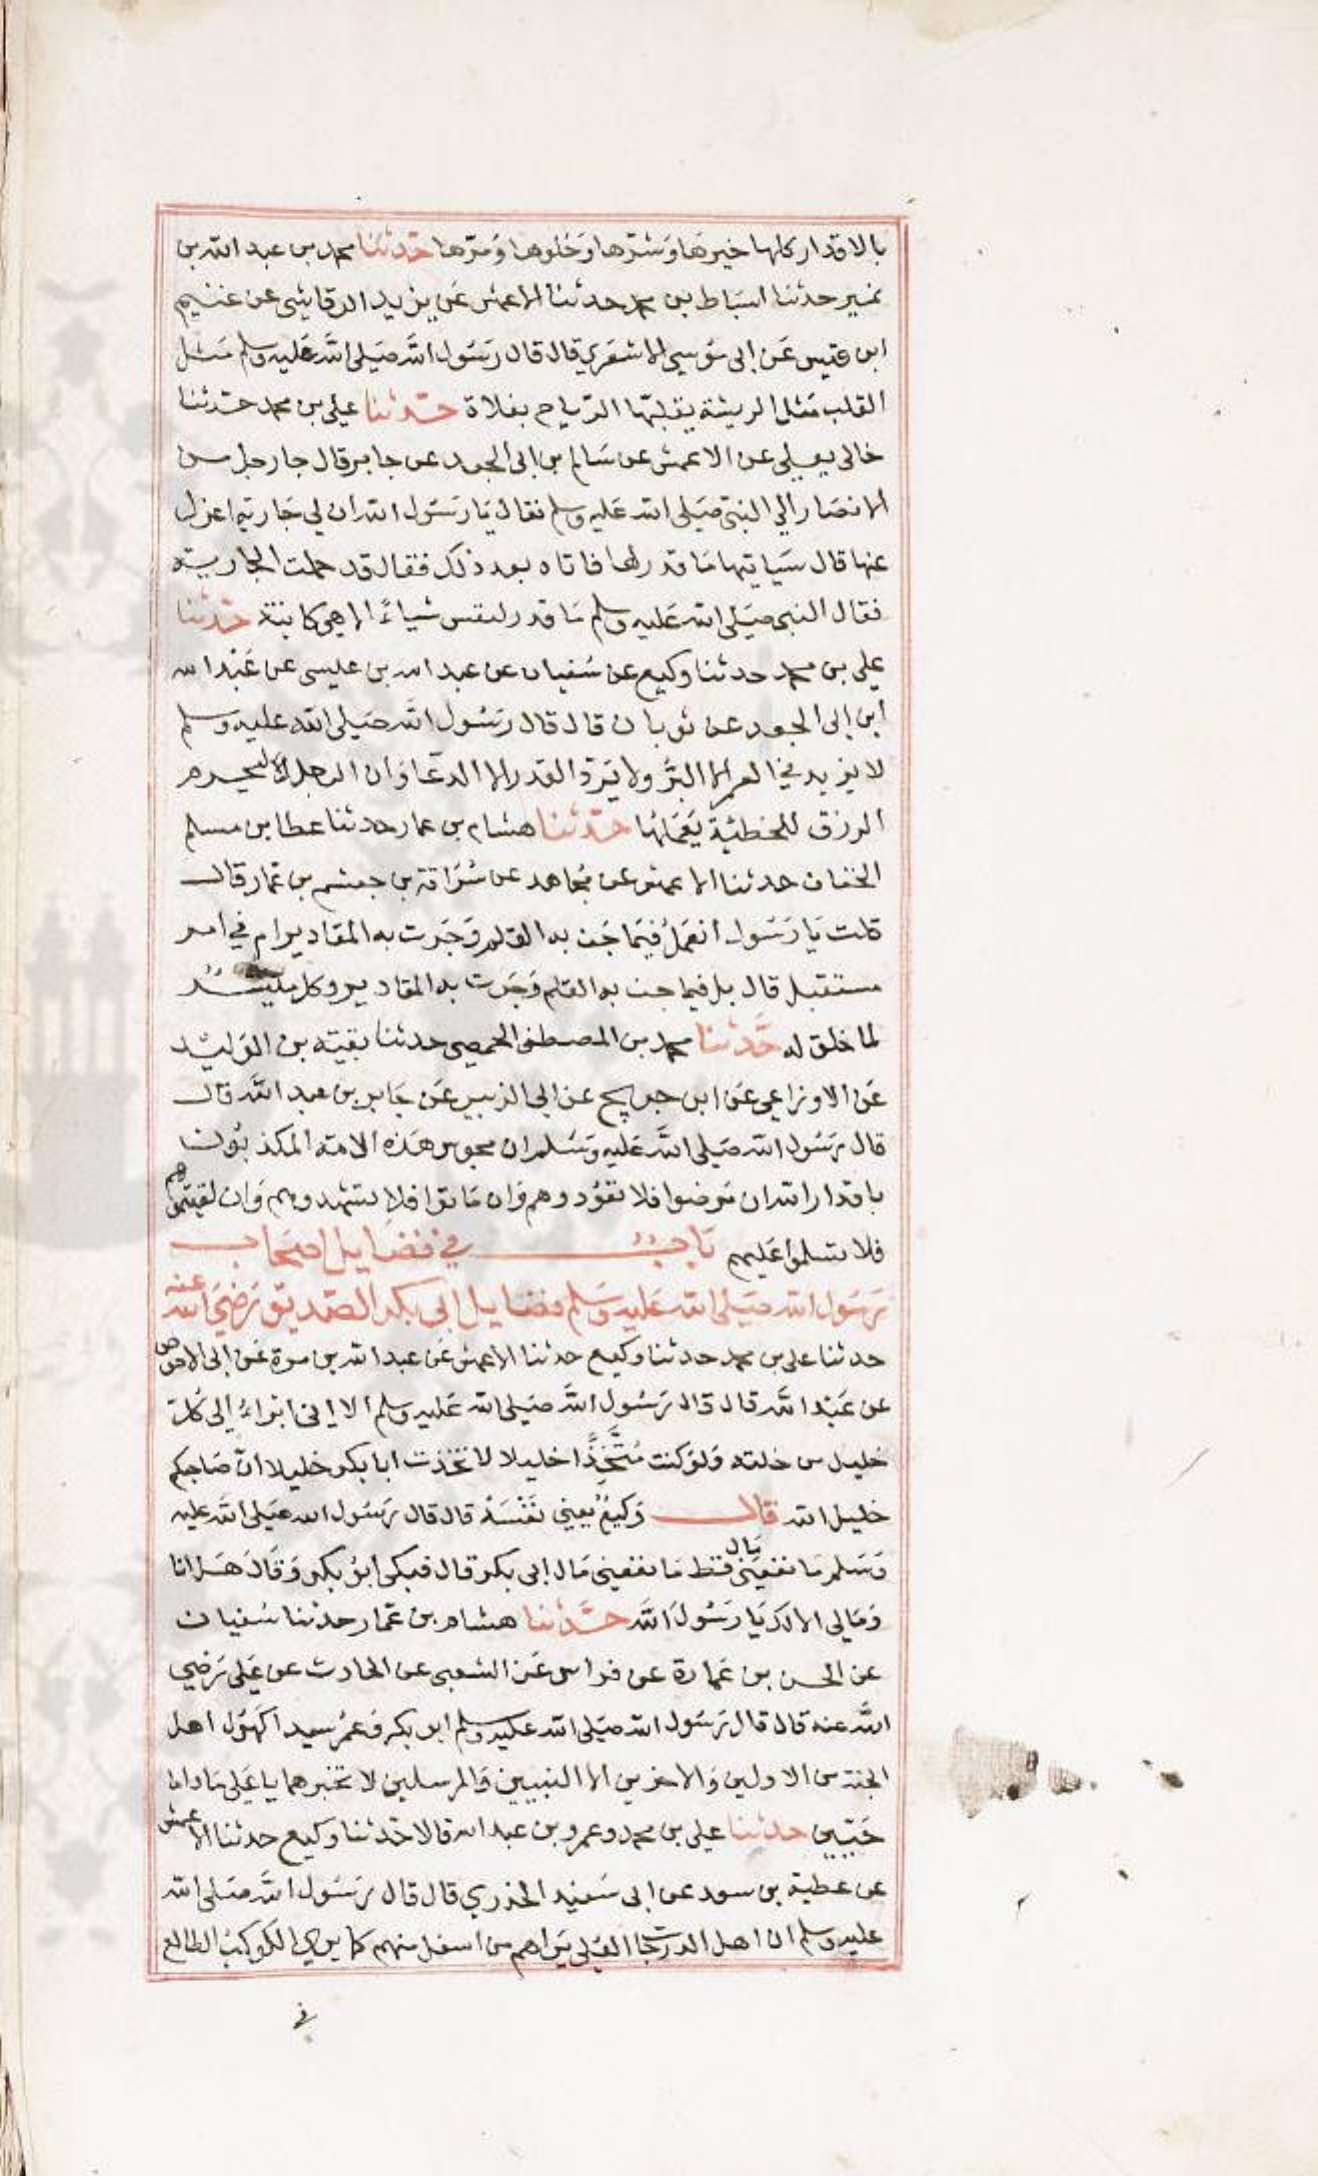 بالاقدار كلها خيرها وشرها وحلوها ومرها حدثنا محمد بن عبد الله بن
نمير حدثنا اسباط بن محمد حدثنا الاعمش عن يزيد الرقاشي عن غنيم
ابن قيس عن ابى موسي الاشعري قال قال رسول الله صلى الله عليه وسلم مثل
القلب مثل الريشة يقلبها الرياح بفلاة حدثنا علي بن محمد حدثنا
خالى يعلى عن الاعمش عن سالم بن ابى الجعد عن جابر قال جا رجل من
الانصار الي النبي صلى الله عليه وسلم فقال يا رسول الله ان لي جارية اعزل
عنها قال سياتيها ما قدر لها فاتاه بعد ذلك فقال قد حملت الجارية
فقال النبي صلى الله عليه وسلم ما قدر لنفس شياءً الا هي كاينة حدثنا
علي بن محمد حدثنا وكيع عن سفيان عن عبد الله بن عيسى عن عبد الله
ابن ابى الجعد عن ثوبان قال قال رسول الله صلى الله عليه وسلم
لا يزيد في العمر الا البر ولا يرد القدر الا الدعا وان الرجل ليحرم
الرزق للخطئة يعملها حدثنا هشام بن عمار حدثنا عطا بن مسلم
الخفاف حدثنا الاعمش عن مجاهد عن سراقة بن جعشم بن عمار قال
قلت يا رسول انعمل فيما جف به القلم وجرت به المقادير ام في امر
مستقبل قال بل فيما جف به القلم وجرت به المقادير وكل ميسر
لما خلق له حدثنا محمد بن المصطفى الحمصي حدثنا بقية بن الوليد
عن الاوزاعي عن ابن جريج عن ابى الزبير عن جابر بن عبد الله قال
قال رسول الله صلى الله عليه وسلم ان مجوس هذه الامة المكذبون
باقدار الله ان مرضوا فلا تعودوهم وان ماتوا فلا تشهدوهم وان لقيتموهم
فلا تسلموا عليهم باب في فضايل اصحاب
رسول الله صلى الله عليه وسلم فضايل ابى بكر الصديق رضي الله عنه
حدثنا على بن محمد حدثنا وكيع حدثنا الاعمش عن عبد الله بن مرة عن ابى الاحوص
عن عبد الله قال قال رسول الله صلى الله عليه وسلم الا انى ابراء الى كل
خليل من خلته ولو كنت متخذًا خليلا لاتخذت ابا بكر خليلا ان صاحبكم
خليل الله قال وكيع يعني نفسه قال قال رسول الله صلى الله عليه
وسلم ما نفعنى مال قط ما نفعنى مال ابى بكر قال فبكى ابو بكر وقال هل انا
ومالى الا لك يا رسول الله حدثنا هشام بن عمار حدثنا سفيان
عن الحسن بن عمارة عن فراس عن الشعبى عن الحارث عن على رضي
الله عنه قال قال رسول الله صلى الله عليه وسلم ابو بكر وعمر سيدا كهول اهل
الجنة من الاولين والاخرين الا النبيين والمرسلين لا تخبرهما يا على ماداما
حيين حدثنا على بن محمد وعمرو بن عبد الله قالا حدثنا وكيع حدثنا الاعمش
عن عطية بن سعد عن ابى سعيد الخدري قال قال رسول الله صلى الله
عليه وسلم ان اهل الدرجات العلى يراهم من اسفل منهم كما يرى الكوكب الطالع
فى